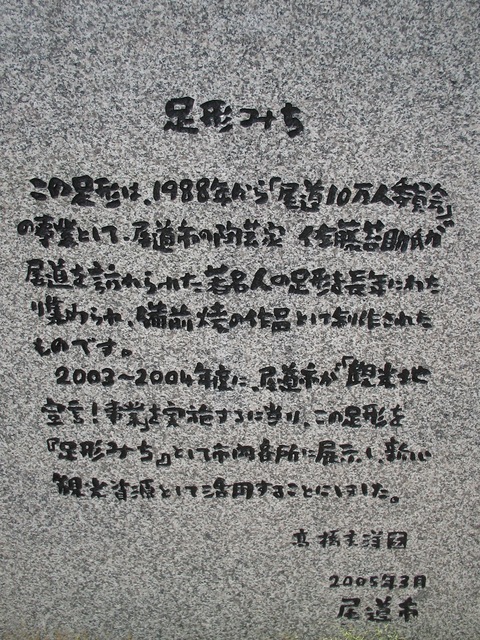 足形みち
この足形は、1988年から「尾道10万人委員会」
の事業として、尾道市の陶芸家 佐藤苔助氏が
尾道を訪れられた著名人の足形を長年にわた
り集められ、備前焼の作品として制作された
ものです。
2003～2004年度に、尾道市が「観光地
宣言!事業」を実施するに当り、この足形を
『足形みち』として市内各所に展示し、新しい
観光資源として活用することにしました。
高橋玄洋
2005年3月
尾道市